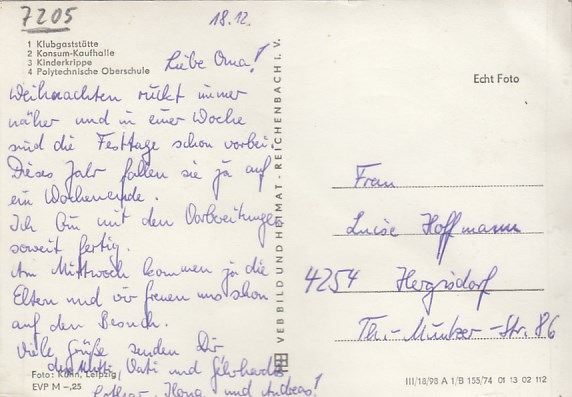 7205
18.12.
1 Klubgaststätte
2 Konsum-Kaufhalle
3 Kinderkrippe
4 Polytechnische Oberschule
Liebe Oma!
Weihnachten rückt immer
näher und in einer Woche
sind die Festtage schon vorbei.
Dieses Jahr fallen sie ja auf
ein Wochenende.
Ich bin mit den Vorbereitungen
soweit fertig.
Am Mittwoch kommen ja die
Eltern und wir freuen uns schon
auf den Besuch.
Viele Grüße senden Dir,
Vati und
Lothar, Ilona und Andreas!
Foto: Kühn, Leipzig
EVP M -,25
VEB BILD UND HEIMAT - REICHENBACH i. V.
Echt Foto
Frau
Luise Hoffmann
4254 Hergisdorf
Th.-Müntzer-Str. 86
III/18/98 A 1/B 155/74 01 13 02 112